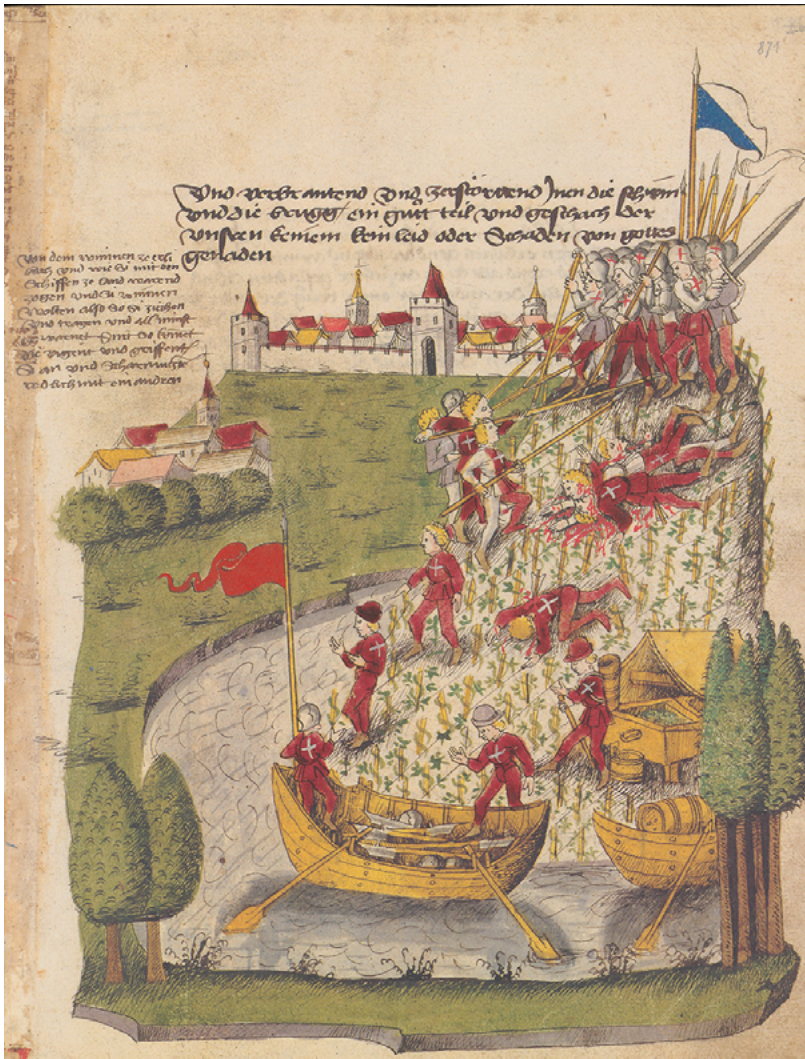 871
Und verbrantend und zerstörtend Inen die schyen
und die brugg ein gůtt teil und geschach der
unsren keinem kein leid oder Schaden von gottes
genaden
Von dem wimmen ze erli
bach und wie Si mit den
Schiffen ze land warend
zogen und Si wimmen
wolten also do Si ziechen
und tragen und all
gewarnet Sint do
die vigent und griffent
Si an und Scharmutzt
redlich mit ein andren